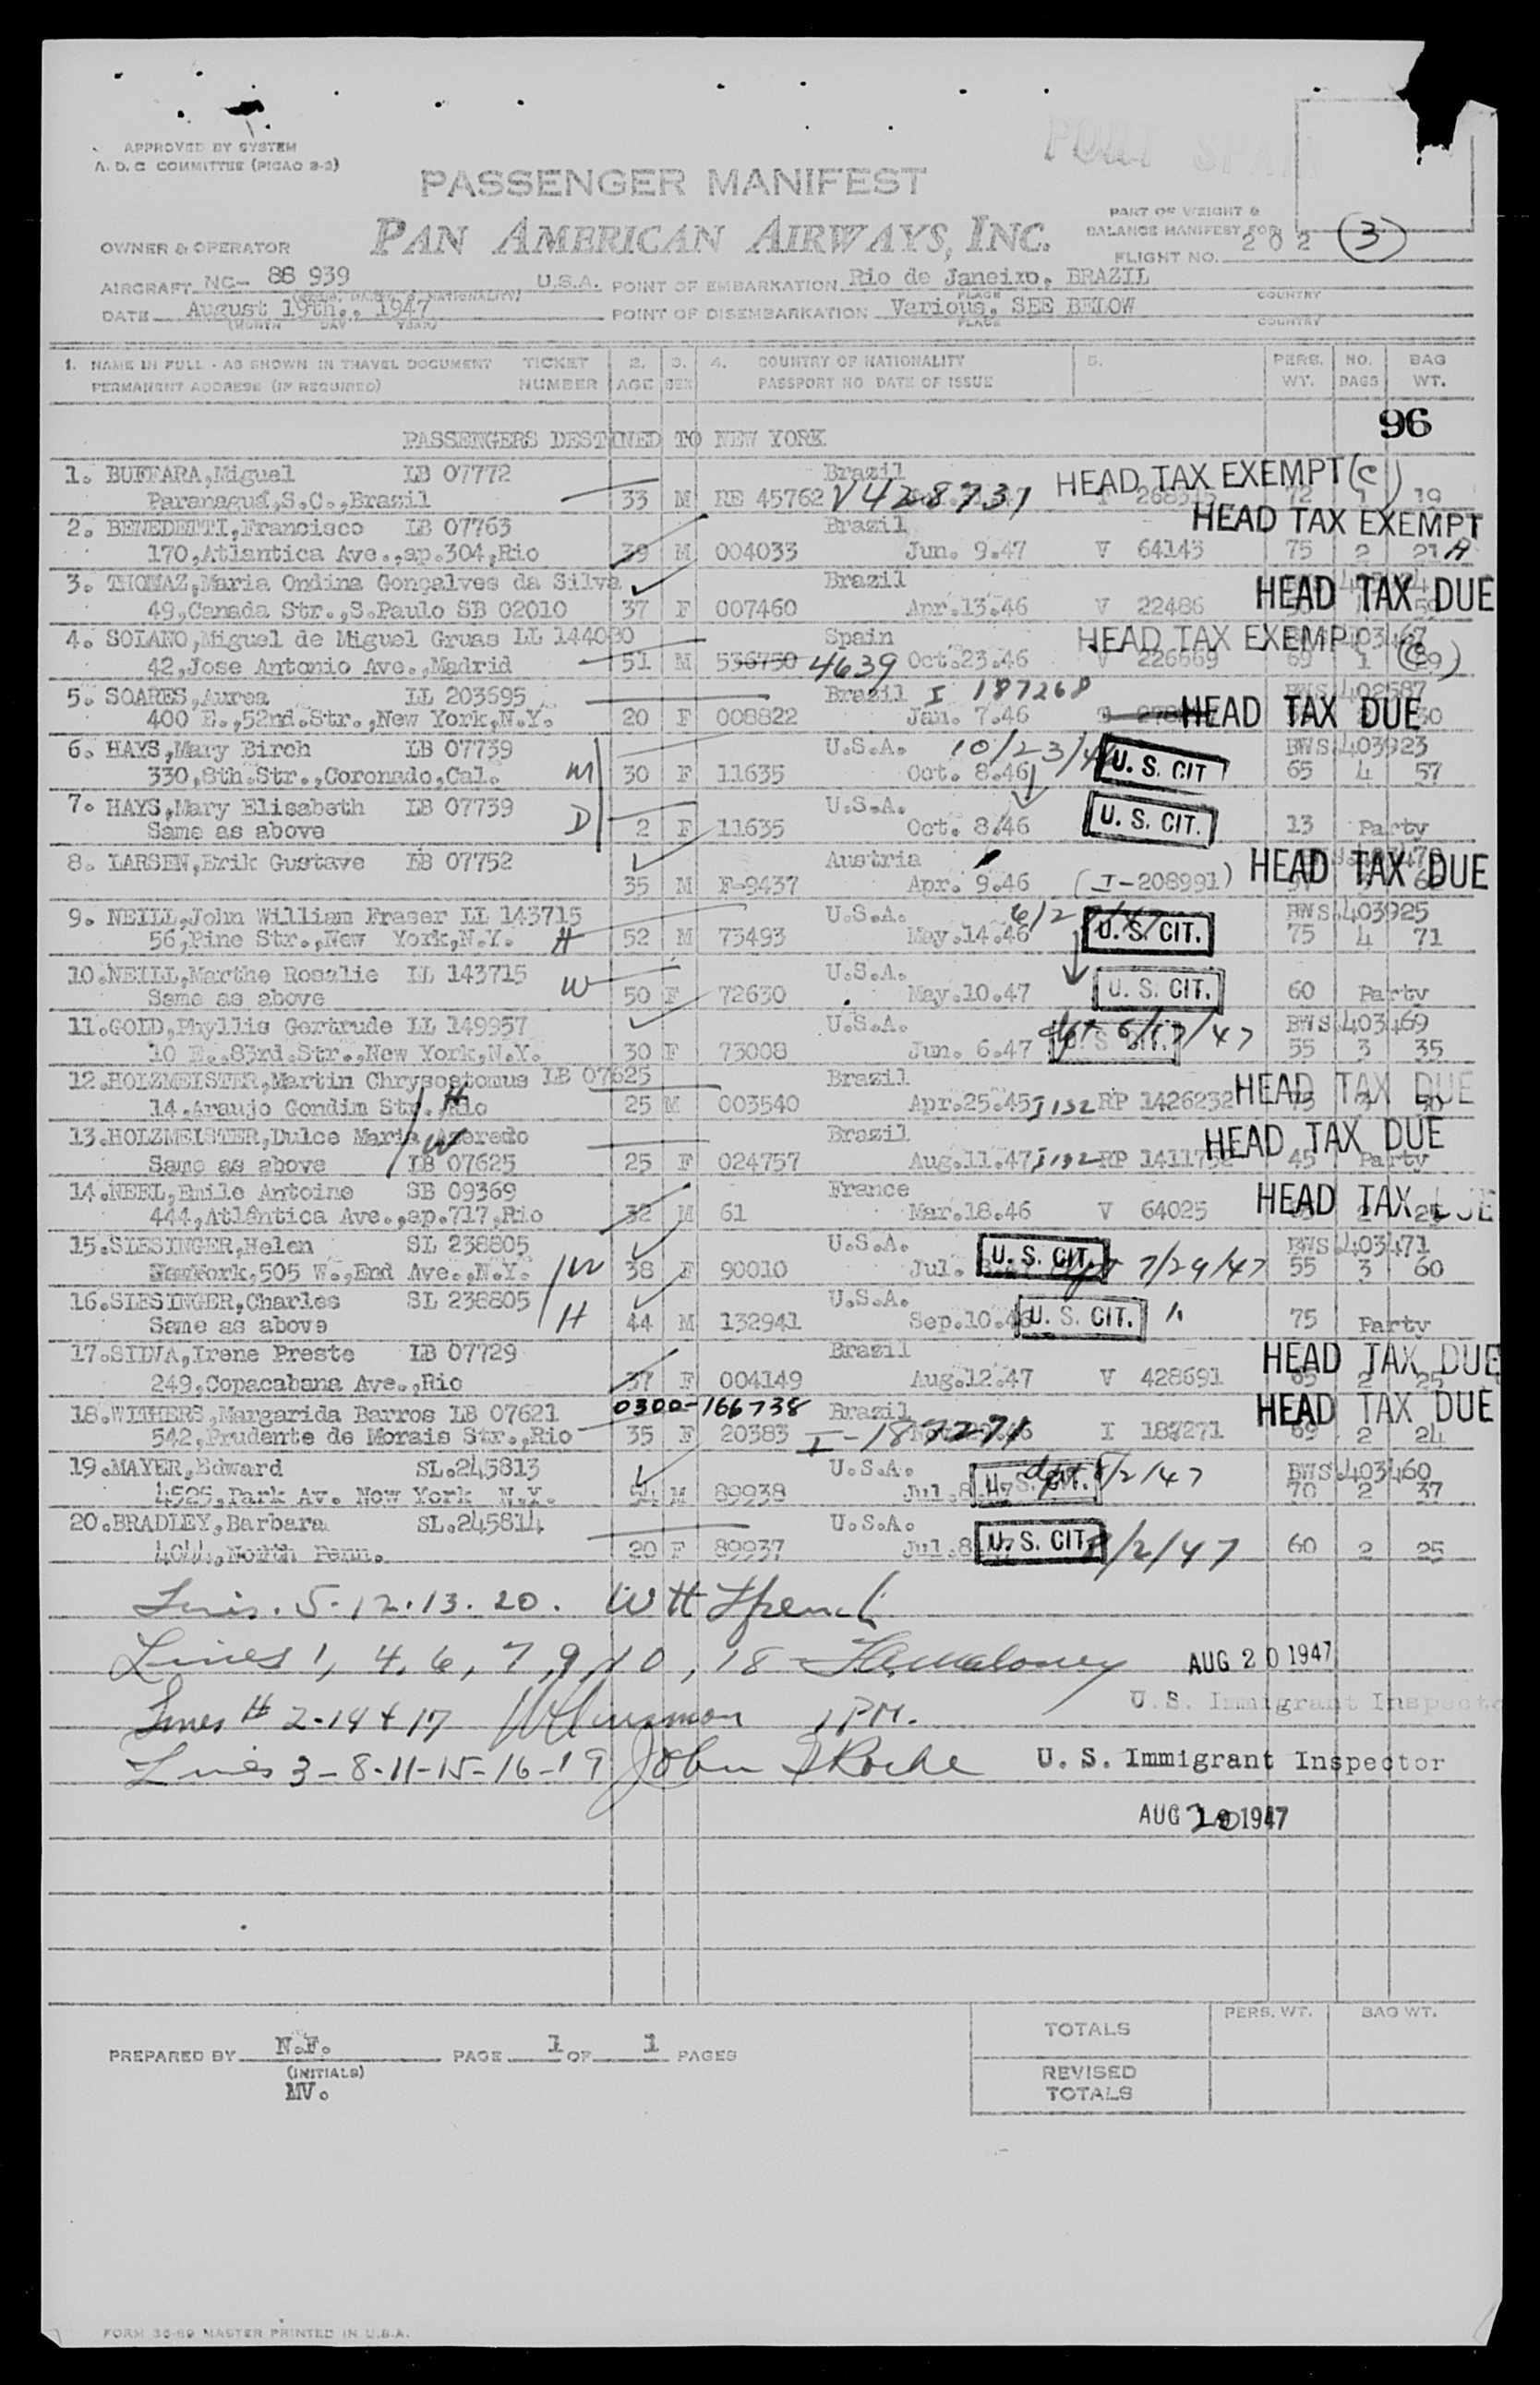 APPROVED BY SYSTEM
A. D. C COMMITTEE (PICAO 2-2)
PORT SPAIN
PASSENGER MANIFEST
PAN AMERICAN AIRWAYS, INC.
PART OF WEIGHT &
BALANCE MANIFEST FOR
FLIGHT NO. 202 3
OWNER & OPERATOR
AIRCRAFT NC- 88 939 U.S.A. POINT OF EMBARKATION Rio de Janeiro, BRAZIL
PLACE COUNTRY
DATE August 19th., 1947 POINT OF DISEMBARKATION Various, SEE BELOW
(MONTH DAY YEAR) PLACE COUNTRY
1. NAME IN FULL - AS SHOWN IN TRAVEL DOCUMENT TICKET 2. 3. 4. COUNTRY OF NATIONALITY 5. PERS. NO. BAG
PERMANENT ADDRESS (IF REQUIRED) NUMBER AGE SEX PASSPORT NO DATE OF ISSUE WT. BAGS WT.
96
PASSENGERS DESTINED TO NEW YORK
1. BUFFARA,Miguel LB 07772 Brazil HEAD TAX EXEMPT (C)
Paranaguá,S.C.,Brazil 33 M RE 45762 V428731 72 1 19
2. BENEDETTI,Francisco LB 07763 Brazil HEAD TAX EXEMPT
170,Atlantica Ave.,ap.304,Rio 39 M 004033 Jun. 9.47 V 64143 75 2 21 A
3. THOMAZ,Maria Ondina Gonçalves da Silva Brazil HEAD TAX DUE
49,Canada Str.,S.Paulo SB 02010 37 F 007460 Apr.13.46 V 22486
4. SOLANO,Miguel de Miguel Gruas LL 144080 Spain HEAD TAX EXEMP
42,Jose Antonio Ave.,Madrid 51 M 536750 4639 Oct.23.46 V 226669 69 1 (C)
5. SOARES,Aurea LL 203695 Brazil I 187268 BWS 402587
400 E.,52nd.Str.,New York,N.Y. 20 F 008822 Jan. 7.46 HEAD TAX DUE 30
6. HAYS,Mary Birch LB 07739 U.S.A. 10/23/46 BWS 403923
330,8th.Str.,Coronado,Cal. M 30 F 11635 Oct. 8.46 U. S. CIT 65 4 57
7. HAYS,Mary Elisabeth LB 07739 U.S.A.
Same as above D 2 F 11635 Oct. 8.46 U. S. CIT. 13 Party
8. LARSEN,Erik Gustave LB 07752 Austria HEAD TAX DUE
35 M F-9437 Apr. 9.46 (I-208991)
9. NEILL,John William Fraser LL 143715 U.S.A. BWS 403925
56,Pine Str.,New York,N.Y. H 52 M 73493 May.14.46 U. S. CIT. 75 4 71
10.NEILL,Marthe Rosalie LL 143715 U.S.A.
Same as above W 50 F 72630 May.10.47 U. S. CIT. 60 Party
11.GOLD,Phyllis Gertrude LL 149957 U.S.A. BWS 403469
10 E.,83rd.Str.,New York,N.Y. 30 F 73008 Jun. 6.47 55 3 35
12.HOLZMEISTER,Martin Chrysostomus LB 07625 Brazil HEAD TAX DUE
14.Araujo Gondim Str.,Rio H 25 M 003540 Apr.25.45 I132 RP 1426232
13.HOLZMEISTER,Dulce Maria Azeredo Brazil HEAD TAX DUE
Same as above W LB 07625 25 F 024757 Aug.11.47 I132 RP 45 Party
14.NEEL,Emile Antoine SB 09369 France HEAD TAX DUE
444,Atlântica Ave.,ap.717,Rio 32 M 61 Mar.18.46 V 64025
15.SLESINGER,Helen SL 238805 U.S.A. BWS 403471
NewYork,505 W.,End Ave.,N.Y. W 38 F 90010 Jul. U. S. CIT. 7/29/47 55 3 60
16.SLESINGER,Charles SL 238805 U.S.A.
Same as above H 44 M 132941 Sep.10.46 U. S. CIT. " 75 Party
17.SILVA,Irene Preste LB 07729 Brazil HEAD TAX DUE
249,Copacabana Ave.,Rio 37 F 004149 Aug.12.47 V 428691
0300-166738
18.WITHERS,Margarida Barros LB 07621 Brazil HEAD TAX DUE
542,Prudente de Morais Str.,Rio 35 F 20383 I-187271 I 187271 69 2 24
19.MAYER,Edward SL.245813 U.S.A. 8/2/47 BWS 403460
4525,Park Av. New York N.Y. 54 M 89938 Jul.8 U. S. CIT. 70 2 37
20.BRADLEY,Barbara SL.245814 U.S.A.
4044,North Penn. 20 F 89937 Jul.8 U. S. CIT. 8/2/47 60 2 25
Lines. 5-12.13.20. WH French
Lines 1, 4, 6, 7, 9, 10, 18 Maloney AUG 20 1947
U.S. Immigrant Inspector
Lines # 2-14 & 17 1 PM.
Lines 3-8-11-15-16-19 John Roche U. S. Immigrant Inspector
AUG 20 1947
TOTALS PERS. WT. BAG WT.
PREPARED BY N.F. PAGE 1 OF 1 PAGES
(INITIALS)
MV.
REVISED
TOTALS
FORM 36-69 MASTER PRINTED IN U.S.A.